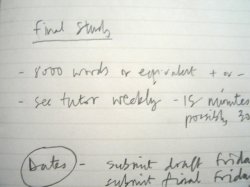 final study
- 8000 words or equivalent + or -
- see tutor weekly - 15 minutes
possibly 30
Dates - submit draft Friday
submit final Friday